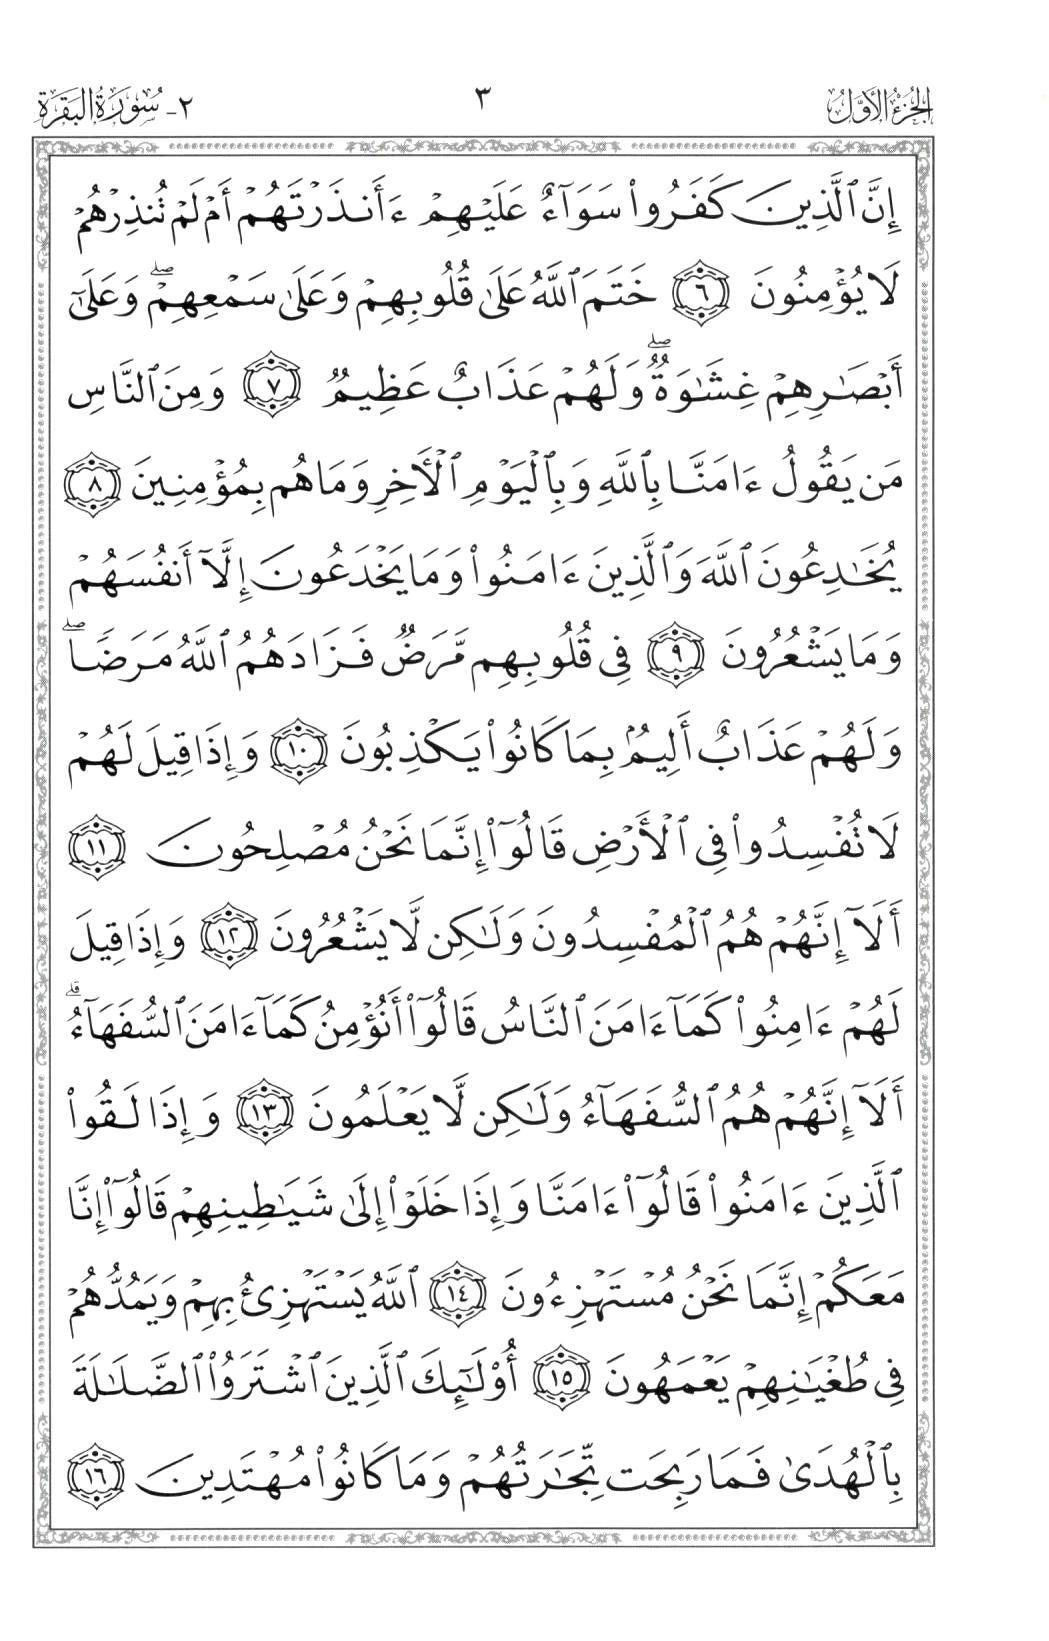 الجزء الأول
٣
٢- سورة البقرة
إِنَّ ٱلَّذِينَ كَفَرُوا۟ سَوَآءٌ عَلَيْهِمْ ءَأَنذَرْتَهُمْ أَمْ لَمْ تُنذِرْهُمْ
لَا يُؤْمِنُونَ ٦ خَتَمَ ٱللَّهُ عَلَىٰ قُلُوبِهِمْ وَعَلَىٰ سَمْعِهِمْ ۖ وَعَلَىٰٓ
أَبْصَـٰرِهِمْ غِشَـٰوَةٌ ۖ وَلَهُمْ عَذَابٌ عَظِيمٌ ٧ وَمِنَ ٱلنَّاسِ
مَن يَقُولُ ءَامَنَّا بِٱللَّهِ وَبِٱلْيَوْمِ ٱلْـَٔاخِرِ وَمَا هُم بِمُؤْمِنِينَ ٨
يُخَـٰدِعُونَ ٱللَّهَ وَٱلَّذِينَ ءَامَنُوا۟ وَمَا يَخْدَعُونَ إِلَّآ أَنفُسَهُمْ
وَمَا يَشْعُرُونَ ٩ فِى قُلُوبِهِم مَّرَضٌ فَزَادَهُمُ ٱللَّهُ مَرَضًا ۖ
وَلَهُمْ عَذَابٌ أَلِيمٌۢ بِمَا كَانُوا۟ يَكْذِبُونَ ١٠ وَإِذَا قِيلَ لَهُمْ
لَا تُفْسِدُوا۟ فِى ٱلْأَرْضِ قَالُوٓا۟ إِنَّمَا نَحْنُ مُصْلِحُونَ ١١
أَلَآ إِنَّهُمْ هُمُ ٱلْمُفْسِدُونَ وَلَـٰكِن لَّا يَشْعُرُونَ ١٢ وَإِذَا قِيلَ
لَهُمْ ءَامِنُوا۟ كَمَآ ءَامَنَ ٱلنَّاسُ قَالُوٓا۟ أَنُؤْمِنُ كَمَآ ءَامَنَ ٱلسُّفَهَآءُ ۗ
أَلَآ إِنَّهُمْ هُمُ ٱلسُّفَهَآءُ وَلَـٰكِن لَّا يَعْلَمُونَ ١٣ وَإِذَا لَقُوا۟
ٱلَّذِينَ ءَامَنُوا۟ قَالُوٓا۟ ءَامَنَّا وَإِذَا خَلَوْا۟ إِلَىٰ شَيَـٰطِينِهِمْ قَالُوٓا۟ إِنَّا
مَعَكُمْ إِنَّمَا نَحْنُ مُسْتَهْزِءُونَ ١٤ ٱللَّهُ يَسْتَهْزِئُ بِهِمْ وَيَمُدُّهُمْ
فِى طُغْيَـٰنِهِمْ يَعْمَهُونَ ١٥ أُو۟لَـٰٓئِكَ ٱلَّذِينَ ٱشْتَرَوُا۟ ٱلضَّلَـٰلَةَ
بِٱلْهُدَىٰ فَمَا رَبِحَت تِّجَـٰرَتُهُمْ وَمَا كَانُوا۟ مُهْتَدِينَ ١٦